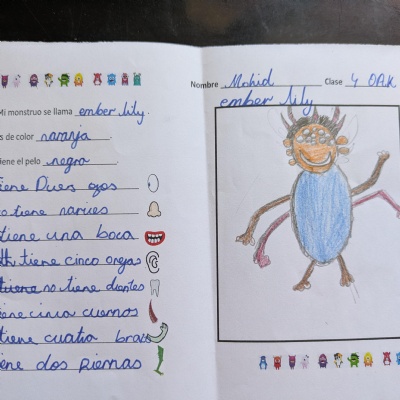 Mi monstruo se llama ember lily.
s de color naranja.
iene el pelo negro
iene Dues ojos
no tiene narices
tiene una boca
tiene cinco orejas
no tiene dientes
iene cinco cuernos
tiene cuatro brazos
iene dos piernas
Nombre Mohid Clase 4 OAK
ember lily